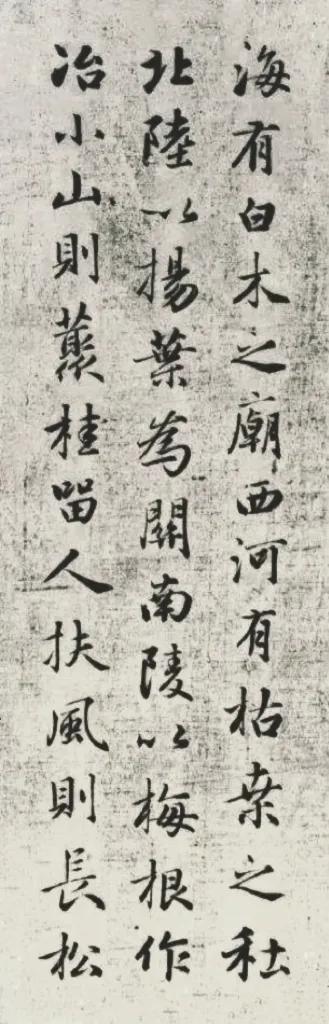 海有白木之廟西河有枯桒之社
北陸以揚葉為關南陵以梅根作
冶小山則藂桂留人扶風則長松